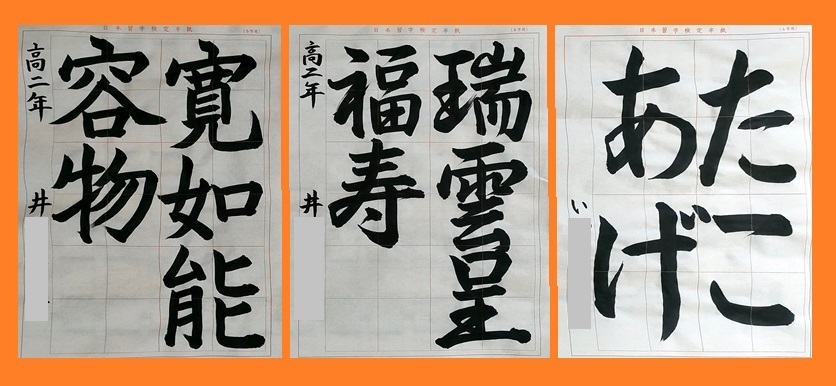 日本習字検定半紙
寛如能
容物
高二年 井
日本習字検定半紙
瑞雲呈
福寿
高二年 井
日本習字検定半紙
たこ
あげ
い